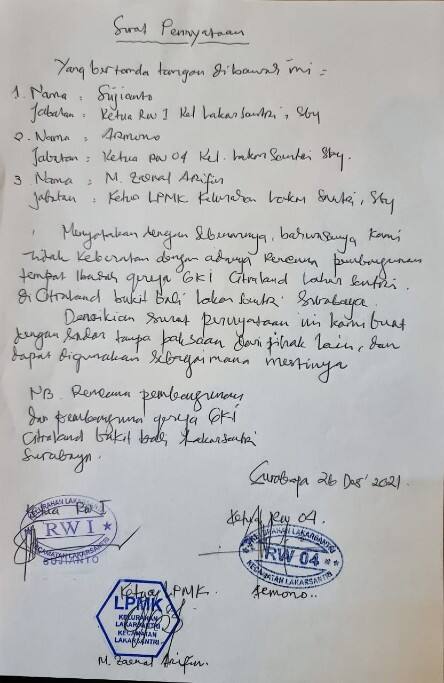 Surat Pernyataan
Yang bertanda tangan dibawah ini :
1. Nama : Sujianto
Jabatan : Ketua RW I Kel Lakarsantri, Sby
2. Nama : Armono
Jabatan : Ketua RW 04 Kel. Lakarsantri Sby.
3. Nama : M. Zaenal Arifin
Jabatan : Ketua LPMK Kelurahan Lakarsantri, Sby
Menyatakan dengan sebenarnya, bahwasanya kami
tidak keberatan dengan adanya Rencana pembangunan
tempat Ibadah gereja GKI Citraland Lakarsantri.
di Citraland bukit bali Lakarsantri Surabaya.
Demikian surat pernyataan ini kami buat
dengan sadar tanpa paksaan dari pihak lain, dan
dapat digunakan sebagaimana mestinya
NB. Rencana pembangunan
dan pembangunan gereja GKI
Citraland bukit bali Lakarsantri
Surabaya.
Surabaya 26 Des' 2021.
Ketua RW I
Ketua RW 04.
KELURAHAN LAKARSANTRI
RW I
KECAMATAN LAKARSANTRI
SUJIANTO
KELURAHAN LAKARSANTRI
RW 04
KECAMATAN LAKARSANTRI
Armono..
Ketua LPMK.
LPMK
KELURAHAN
LAKARSANTRI
KECAMATAN
LAKARSANTRI
M. Zaenal Arifin.